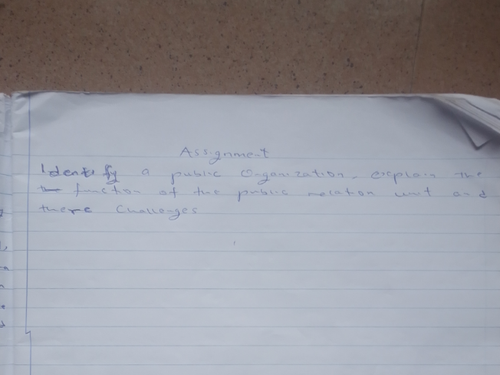 Assignment
Identify a public Organization. explain the
function of the public relation unit and
there Challenges